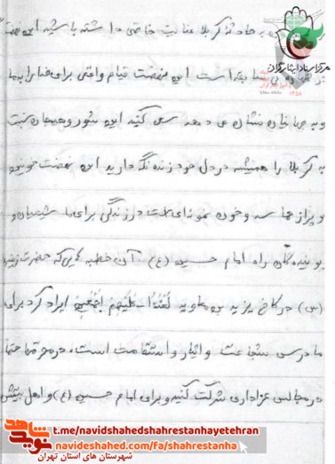 به حادثه کربلا عنایت خاصی داشته باشید این نهضت
بی سابقه است این نهضت قیام واقعی برای خدا را به ما
و به جهانیان نشان می دهد سعی کنید این شور و هیجان نسبت
به کربلا را همیشه در دل خود زنده نگه دارید این نهضت خونین
و پر از حماسه و خون نمونه ای است در زندگی برای ما شیعیان و
پویندگان راه امام حسین (ع). آن خطبه هایی که حضرت زینب
(س) در کاخ یزید بن معاویه لعنة الله علیهم اجمعین ایراد کرد برای
ما درس شجاعت و ایثار و استقامت است، در محرم حتما
در مجالس عزاداری شرکت کنید و برای امام حسین (ع) و اهل بیتش
مرکز اسناد ایثارگران
نوید شاهد
t.me/navidshahedshahrestanhayetehran
navideshahed.com/fa/shahrestanha
شهرستان های استان تهران